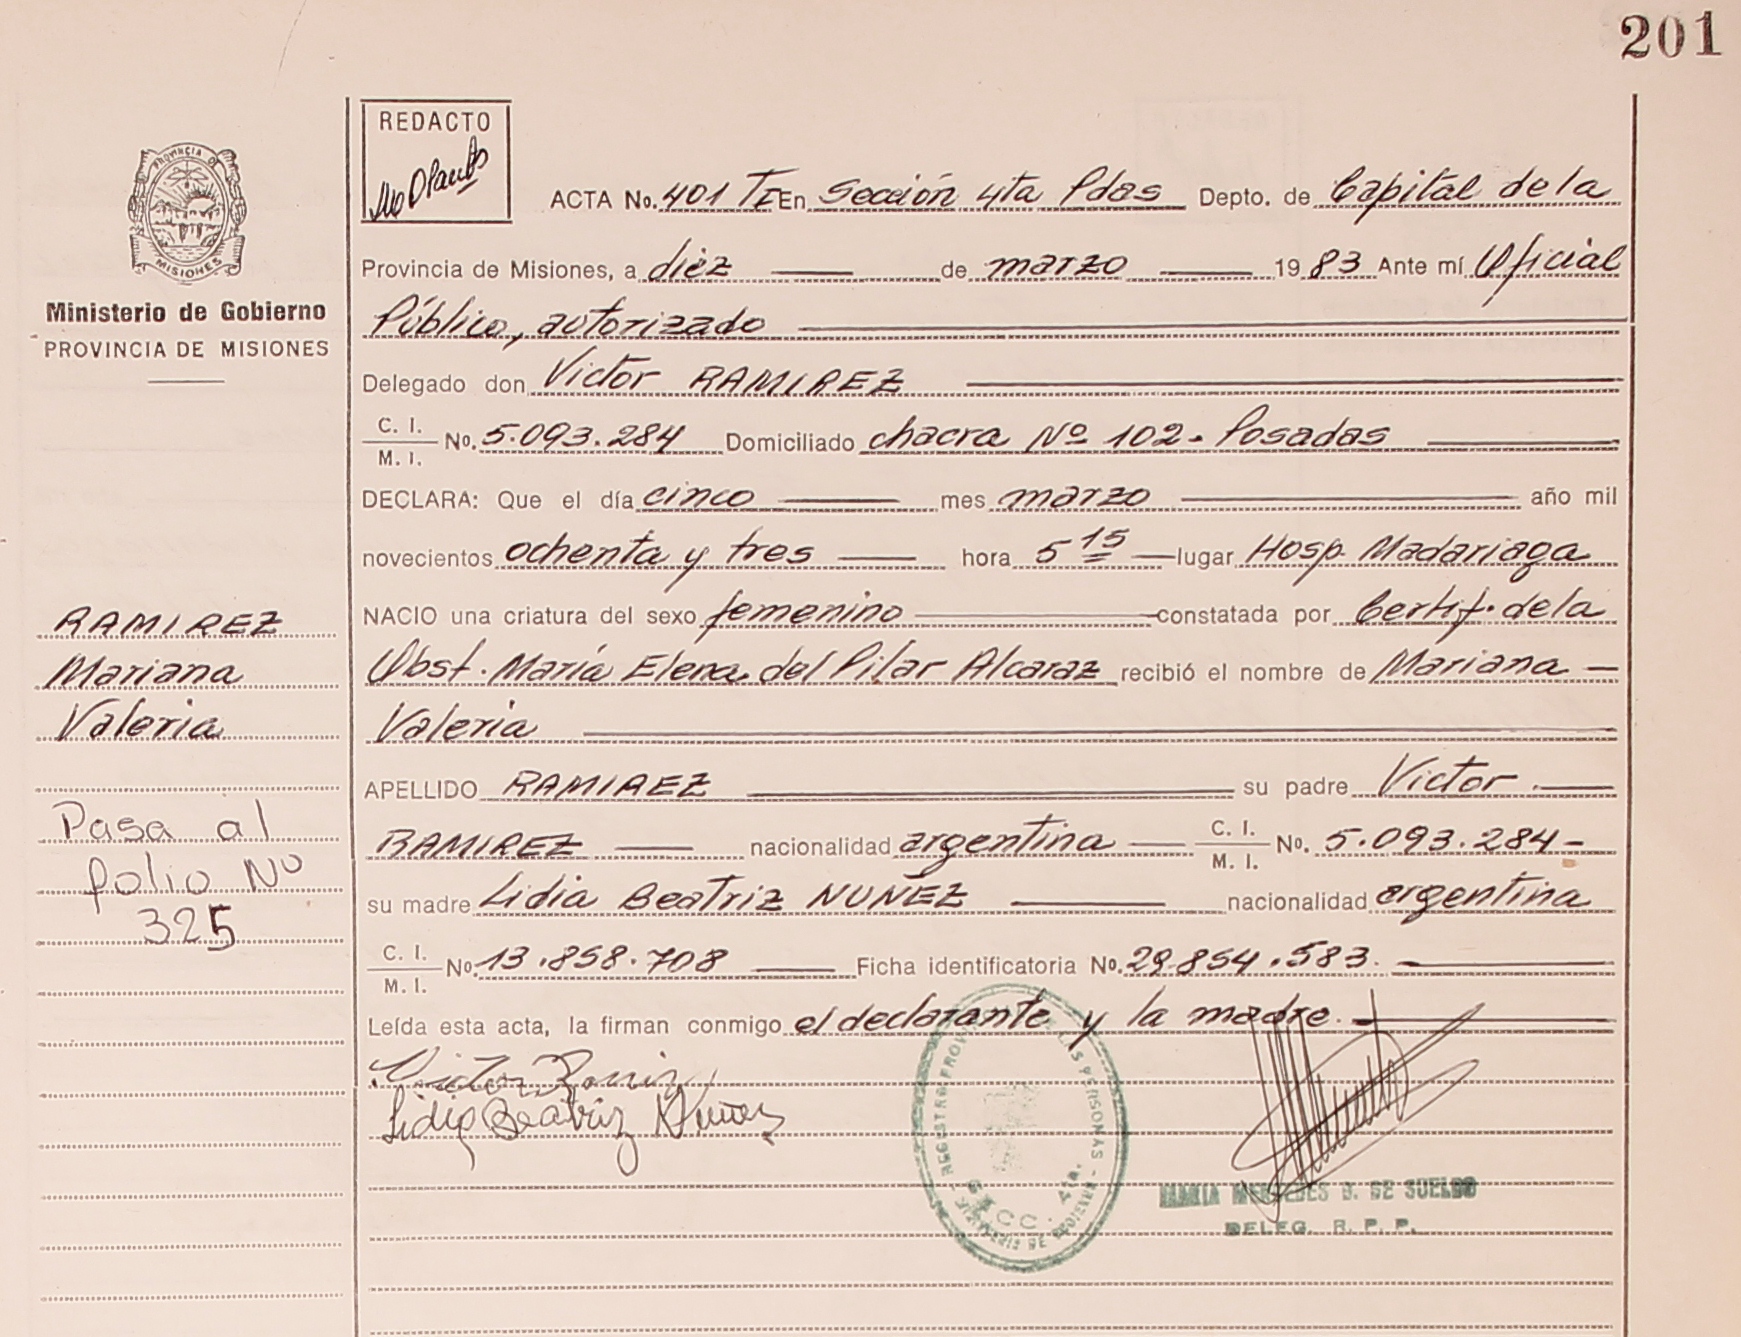 201
REDACTO
PROVINCIA DE
MISIONES
Ministerio de Gobierno
PROVINCIA DE MISIONES
ACTA No. 401 TI En Sección 4ta Pdas Depto. de Capital de la
Provincia de Misiones, a diez de marzo 1983 Ante mí Oficial
Público, autorizado
Delegado don Victor RAMIREZ
C. I.
M. I. No. 5.093.284 Domiciliado chacra Nº 102 - Posadas
DECLARA: Que el día cinco mes marzo año mil
novecientos ochenta y tres hora 5 15 lugar Hosp. Madariaga
NACIO una criatura del sexo femenino constatada por Certif. de la
Obst. María Elena del Pilar Alcaraz recibió el nombre de Mariana
Valeria
APELLIDO RAMIREZ su padre Victor
RAMIREZ nacionalidad argentina C. I.
M. I. No. 5.093.284-
su madre Lidia Beatriz NUÑEZ nacionalidad argentina
C. I.
M. I. No. 13.858.708 Ficha identificatoria No. 29.854.583.
Leída esta acta, la firman conmigo el declarante y la madre.
Lidia Beatriz Nuñez
RAMIREZ
Mariana
Valeria
Pasa al
folio Nº
325
REGISTRO PROV LAS PERSONAS
SECC. 4ta.
MARIA MERCEDES D. DE SUELDO
DELEG. R. P. P.